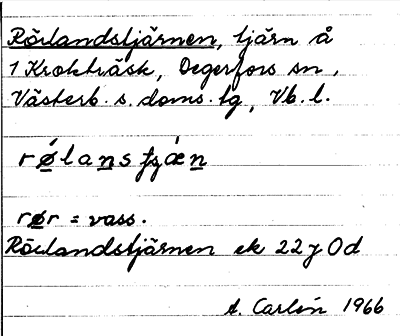 Rörlandstjärnen, tjärn å
1 Krokträsk, Degerfors sn,
Västerb. s. doms. tg, Vb. l.
rø̀lans tjǽn
rør = vass.
Rörlandstjärnen ek 22 y Od
A. Carlén 1966